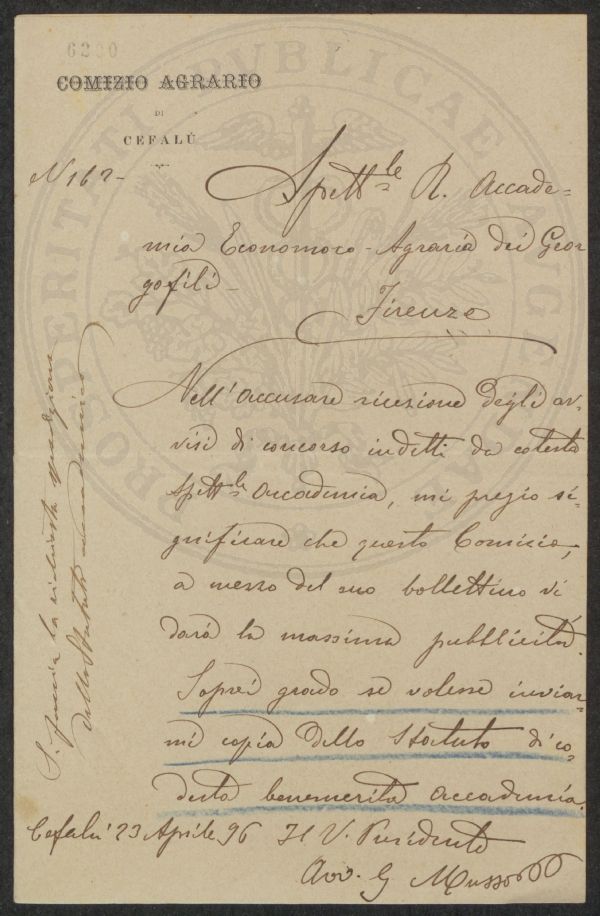 6200
COMIZIO AGRARIO
DI
CEFALÙ
N 162-
Spett.le R. Accade=
mia Economoco-Agraria dei Geor
gofili-
Firenze
Nell'accusare ricezione degli av-
visi di concorso indetti da cotesta
Spett.le Accademia, mi pregio si-
gnificare che questo Comizio,
a mezzo del suo bollettino vi
darà la massima pubblicità.
Saprei grado se volesse inviar-
mi copia dello Statuto di co-
desta benemerita accademia.
Cefalù 23 Aprile 96 Il V. Presidente
Avv. G Musso
S. faccia la richiesta spedizione
dello Statuto accademico
PROSPERITATI PUBLICAE AUGENDAE